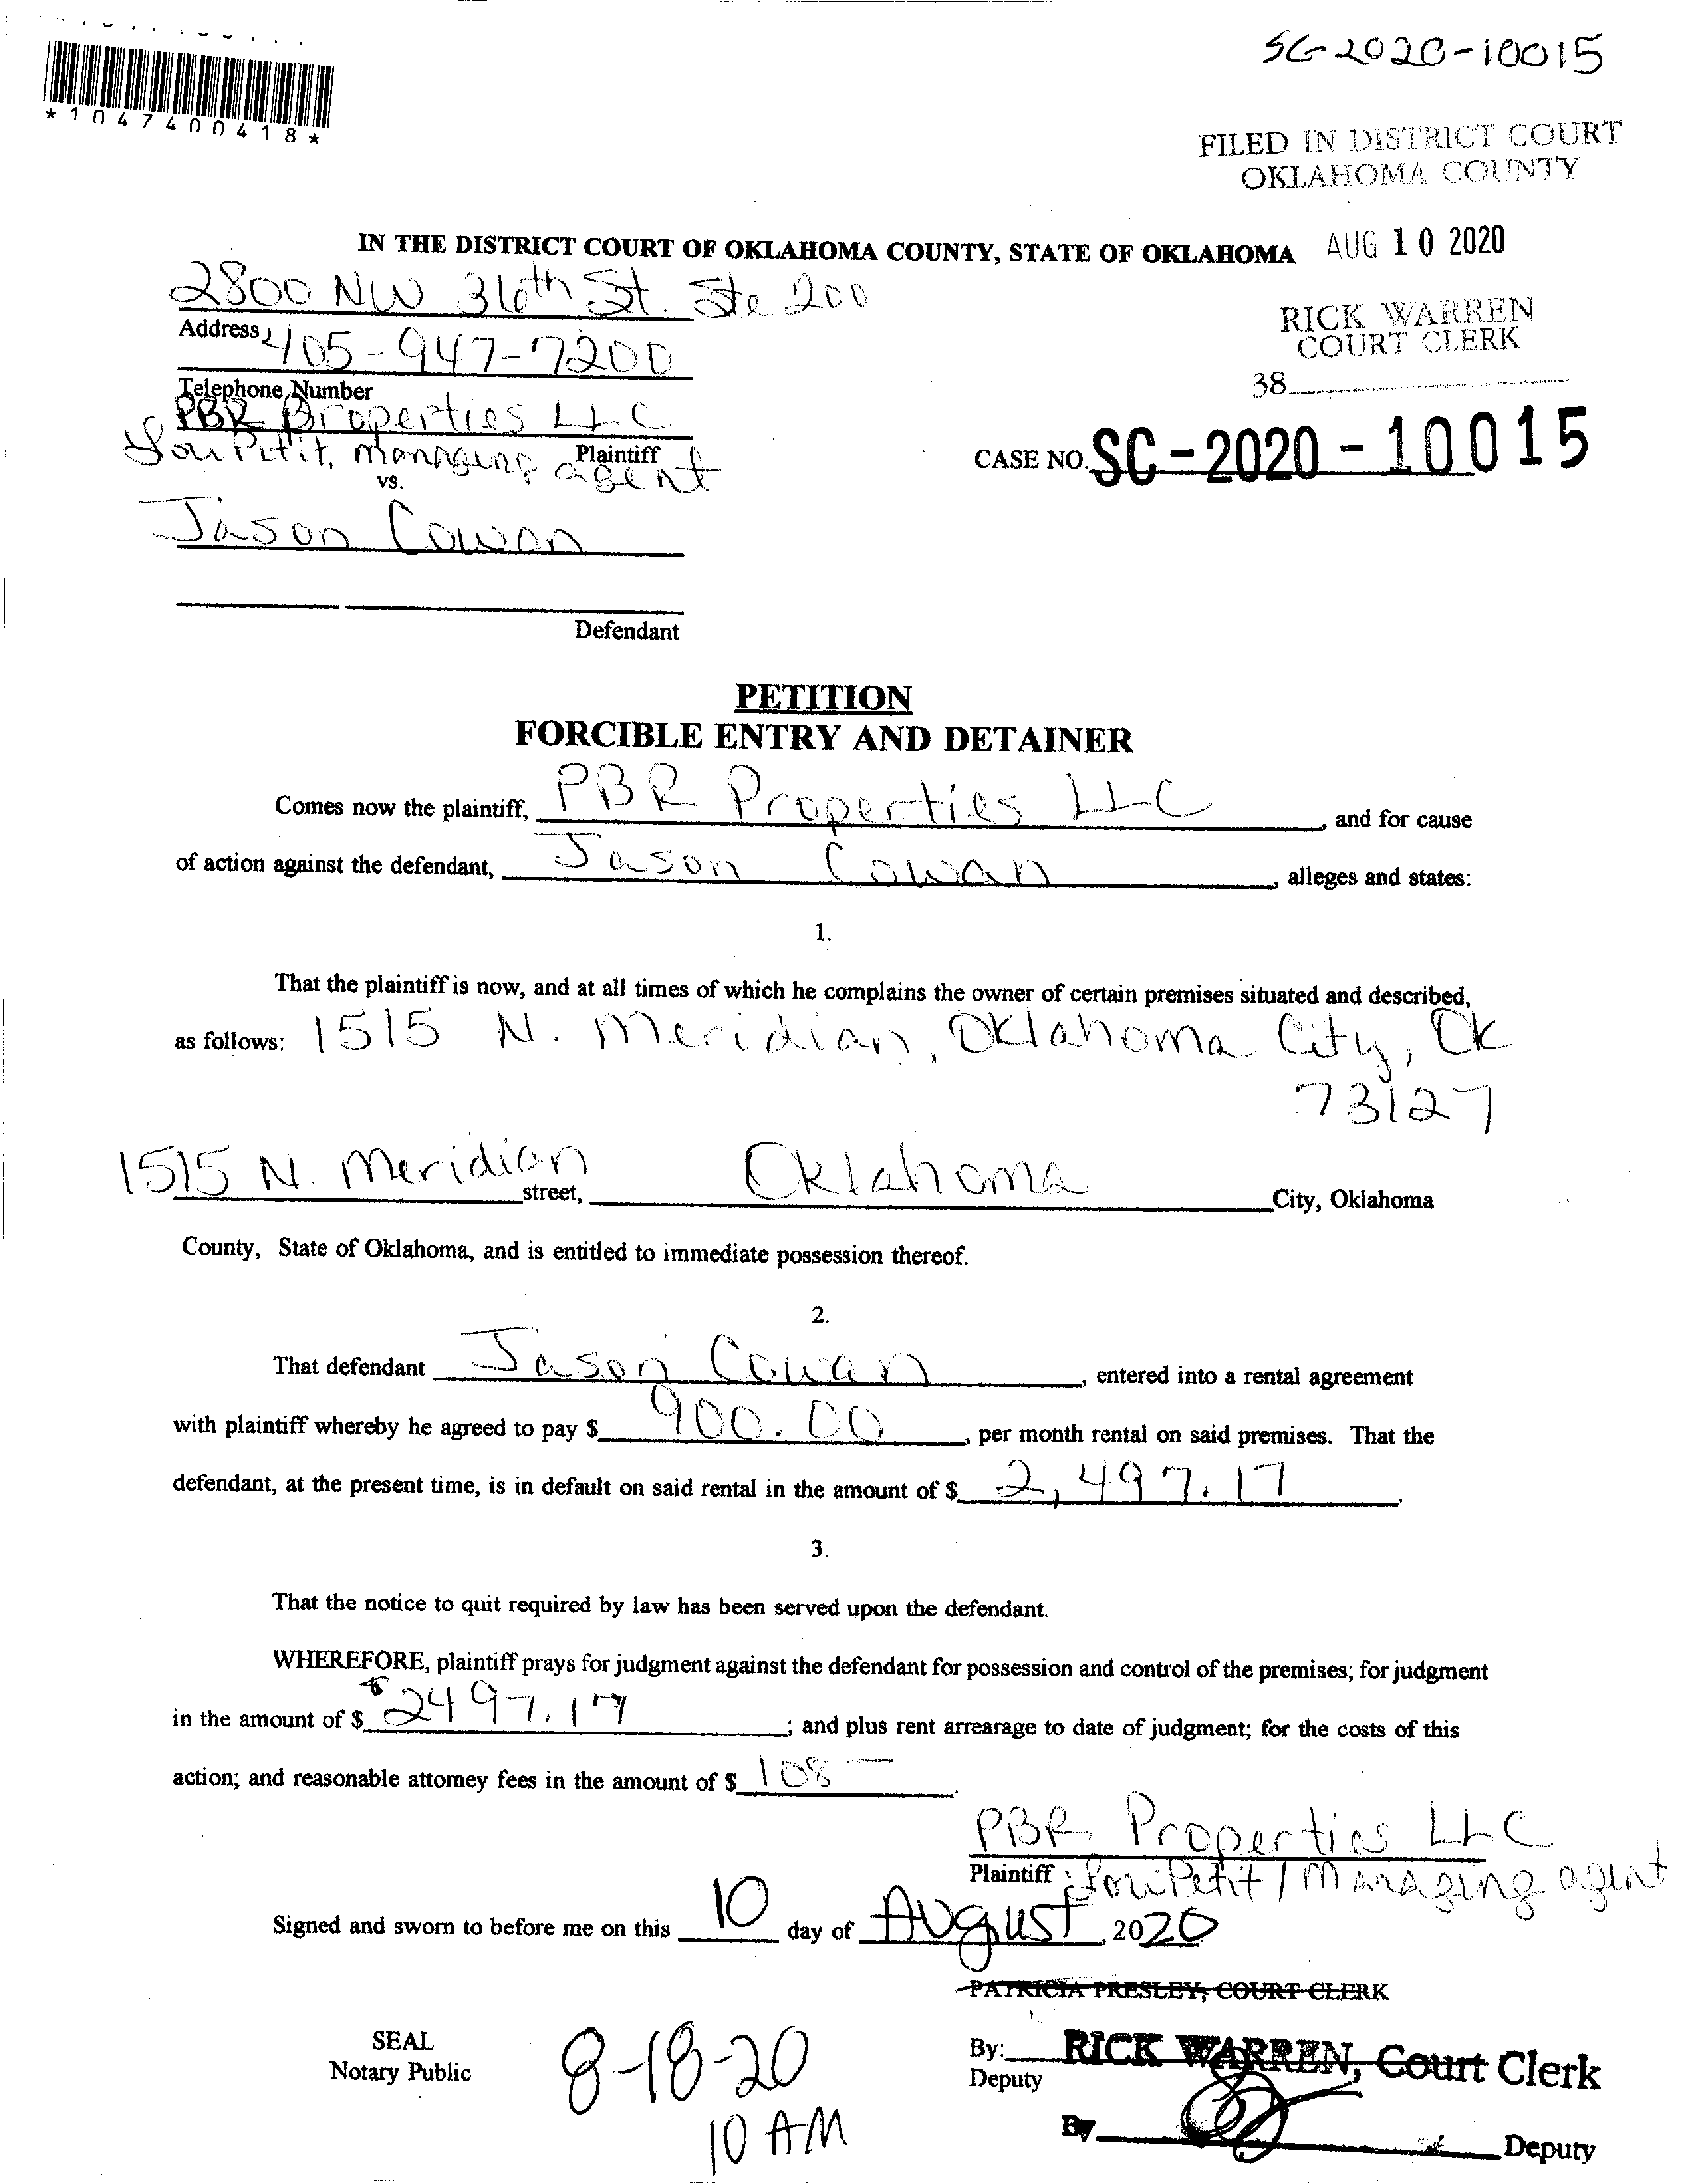 SC-2020-10015
*1047400418*
FILED IN DISTRICT COURT
OKLAHOMA COUNTY
IN THE DISTRICT COURT OF OKLAHOMA COUNTY, STATE OF OKLAHOMA
AUG 10 2020
2800 NW 36th St. Ste 200
Address
RICK WARREN
COURT CLERK
405-947-7200
Telephone Number
38
PBR Properties LLC
Lou Petit, managing agent
Plaintiff
CASE NO. SC-2020-10015
vs.
Jason Cowan
Defendant
PETITION
FORCIBLE ENTRY AND DETAINER
Comes now the plaintiff, PBR Properties LLC, and for cause
of action against the defendant, Jason Cowan, alleges and states:
1.
That the plaintiff is now, and at all times of which he complains the owner of certain premises situated and described,
as follows: 1515 N. Meridian, Oklahoma City, Ok
73127
1515 N. Meridian street, Oklahoma City, Oklahoma
County, State of Oklahoma, and is entitled to immediate possession thereof.
2.
That defendant Jason Cowan, entered into a rental agreement
with plaintiff whereby he agreed to pay $ 900.00, per month rental on said premises. That the
defendant, at the present time, is in default on said rental in the amount of $ 2,497.17.
3.
That the notice to quit required by law has been served upon the defendant.
WHEREFORE, plaintiff prays for judgment against the defendant for possession and control of the premises; for judgment
in the amount of $ 2497.17; and plus rent arrearage to date of judgment; for the costs of this
action; and reasonable attorney fees in the amount of $ 108 —.
PBR Properties LLC
Plaintiff: Lou Petit / Managing agent
Signed and sworn to before me on this 10 day of August, 2020
PATRICIA PRESLEY, COURT CLERK
SEAL
Notary Public
8-18-20
10 AM
By: RICK WARREN, Court Clerk
Deputy
By Deputy